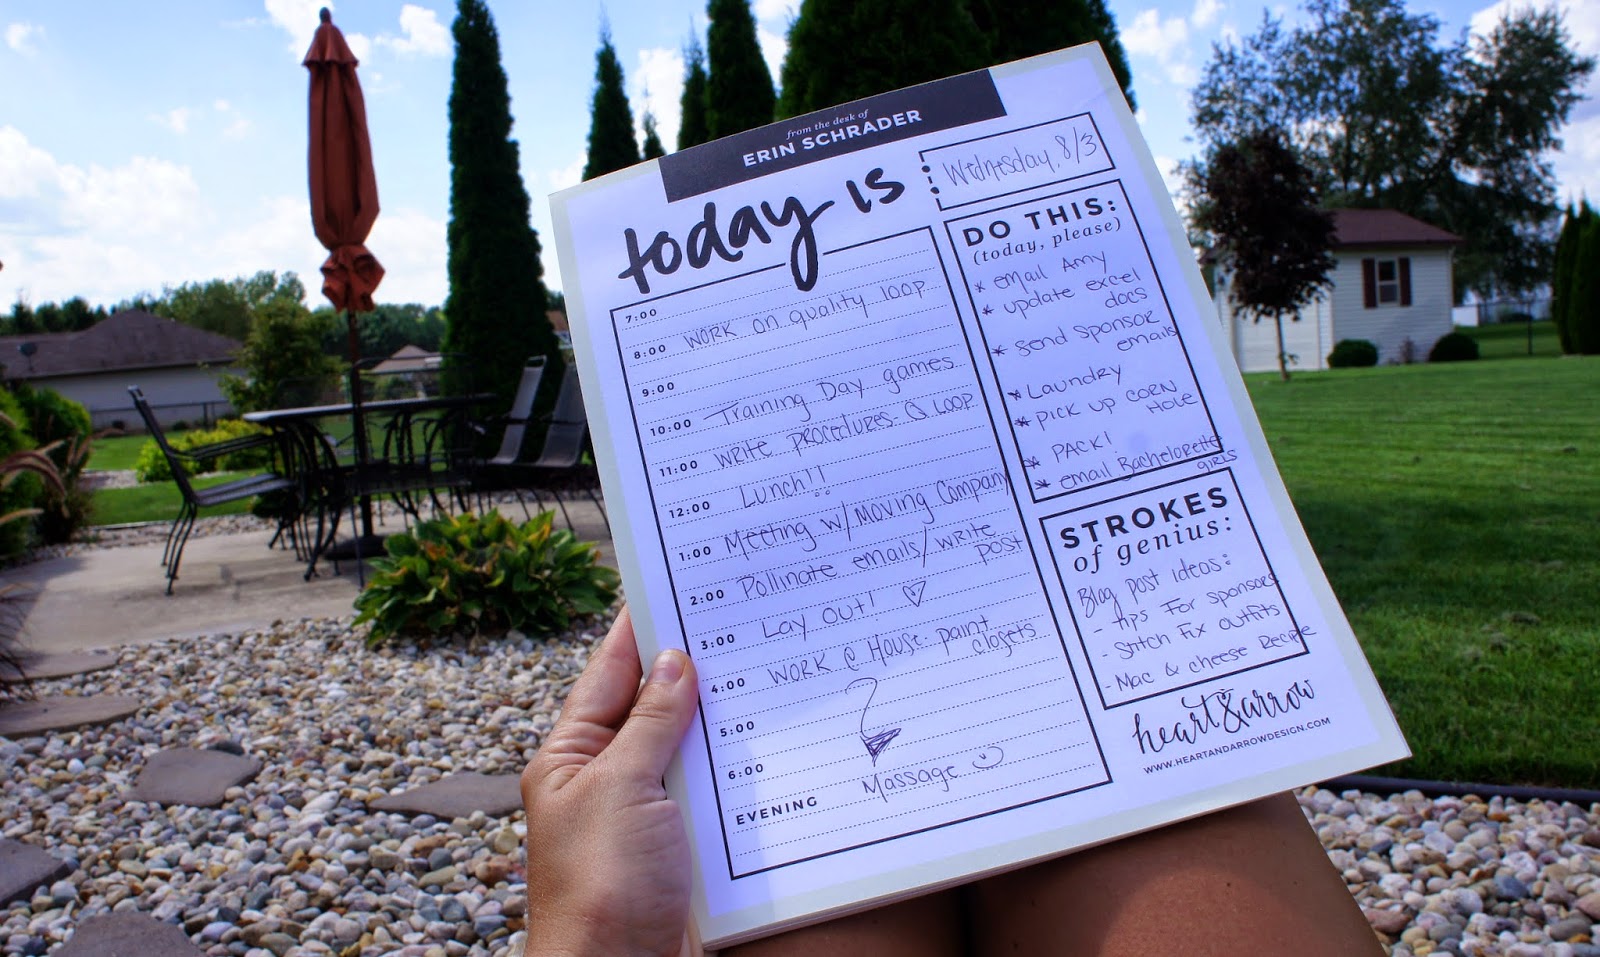 from the desk of
ERIN SCHRADER
today is
Wednesday, 8/3
7:00
8:00 WORK on quality loop
9:00
10:00 Training Day games
11:00 Write procedures Q Loop
12:00 Lunch!!
1:00 Meeting w/ Moving Company
2:00 Pollinate emails/write
post
3:00 Lay out! ♡
4:00 WORK @ House paint
closets
5:00
6:00
EVENING Massage
DO THIS:
(today, please)
* email Amy
* update excel
docs
* send sponsor
emails
* LAUNDRY
* PICK UP CORN
HOLE
* PACK!
* email Bachelorette
girls
STROKES
of genius:
Blog post ideas:
- tips for sponsors
- Stitch Fix outfits
- Mac & cheese Recipe
heart & arrow
WWW.HEARTANDARROWDESIGN.COM